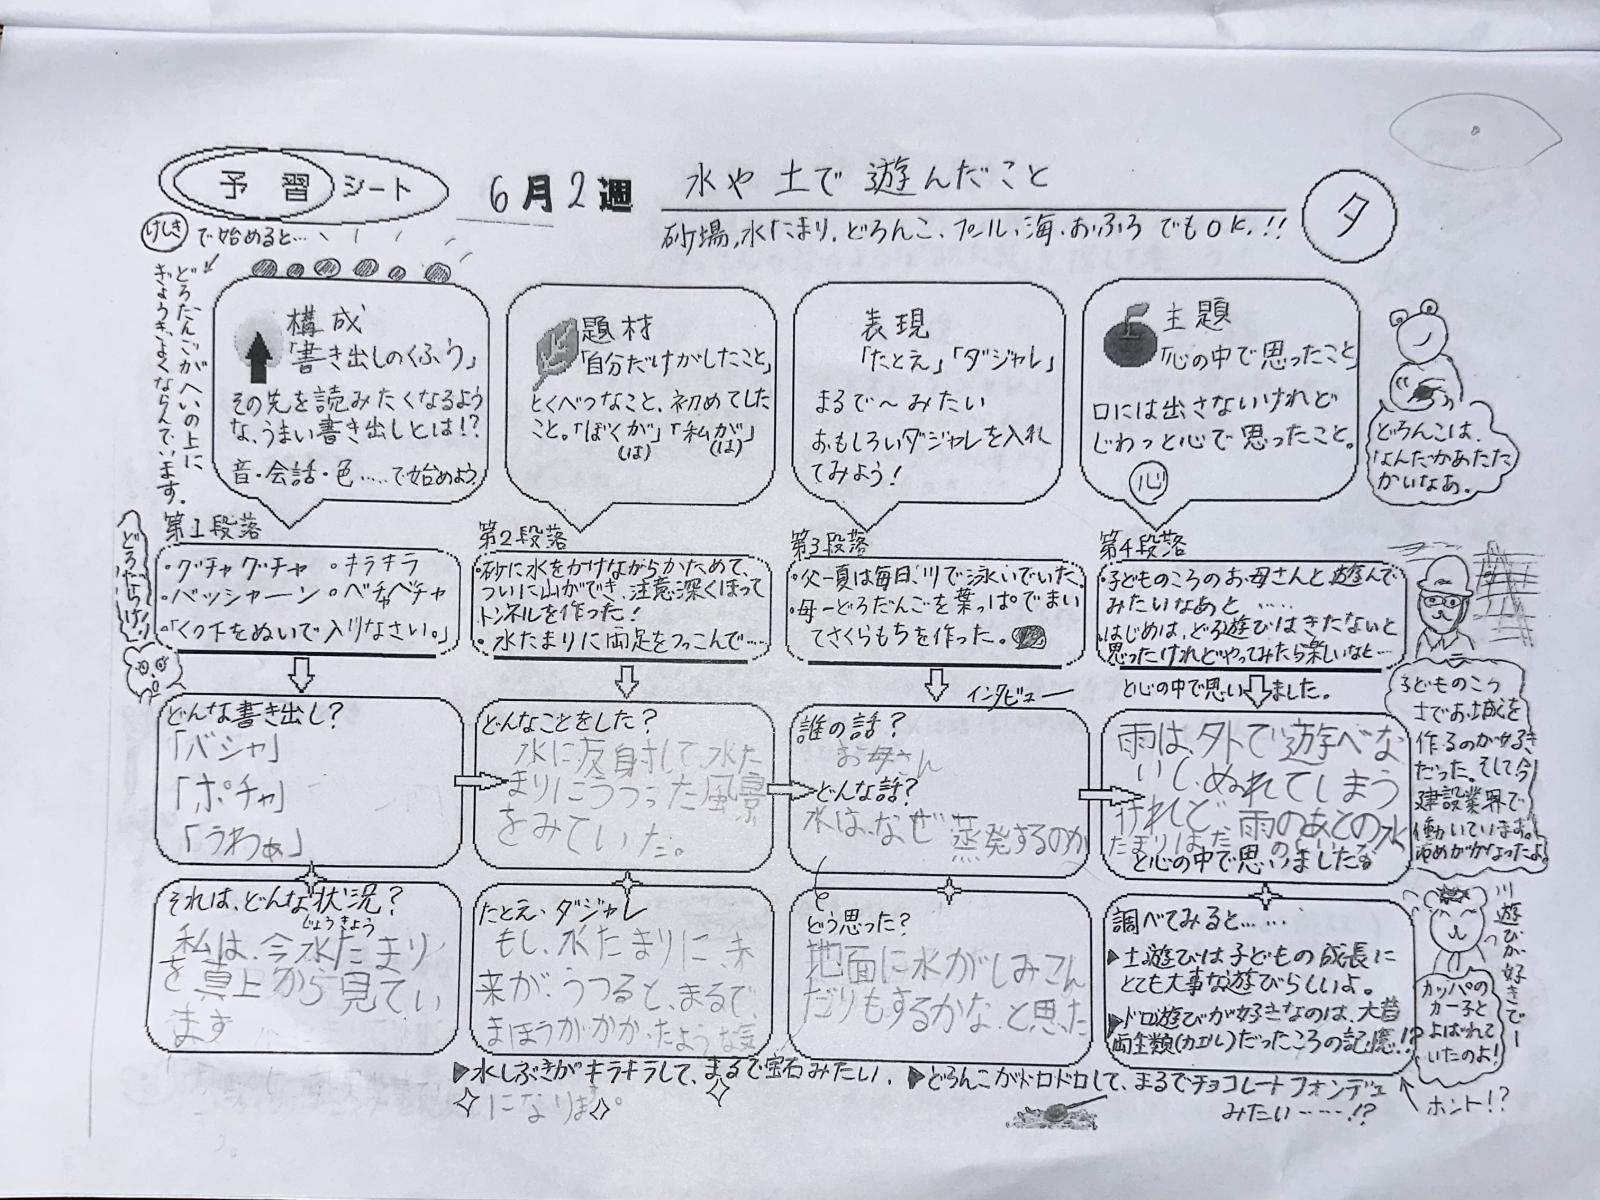 予習シート
6月2週
水や土で遊んだこと
砂場、水たまり、どろんこ、プール、海、おふろでもOK.!!
タ
けしきで始めると…
どろだんごがへいの上に
ぎょうぎよくならんでいます。
構成
「書き出しのくふう」
その先を読みたくなるよう
な、うまい書き出しとは!?
音・会話・色……で始めよう
題材
「自分だけがしたこと」
とくべつなこと、初めてした
こと。「ぼくが」「私が」
(は) (は)
表現
「たとえ」「ダジャレ」
まるで〜みたい
おもしろいダジャレを入れ
てみよう!
主題
「心の中で思ったこと」
口には出さないけれど
じわっと心で思ったこと。
心
どろんこは、
なんだかあたた
かいなあ。
どろやらけ
第1段落
・グチャグチャ ・キラキラ
・バッシャーン ・ベチャベチャ
・「くつ下をぬいで入りなさい。」
第2段落
・砂に水をかけながらかためて、
ついに山ができ、注意深くほって
トンネルを作った!
・水たまりに両足をつっこんで……
第3段落
・父ー夏は毎日、川で泳いでいた。
・母ーどろだんごを葉っぱでまい
てさくらもちを作った。
第4段落
・子どものころのお母さんと遊んで
みたいなあと……
はじめは、どろ遊びはきたないと
思ったけれどやってみたら楽しいなと…
と心の中で思いました。
どんな書き出し?
「バシャ」
「ポチャ」
「うわぁ」
どんなことをした?
水に反射して水た
まりにうつった風景
をみていた。
インタビュー
誰の話?
お母さん
どんな話?
水は、なぜ蒸発するのか
雨は、外で遊べな
いし、ぬれてしまう
けれど、雨のあとの水
たまりはだ
と心の中で思いました。
子どものころ
土でお城を
作るのが好き
だった。そして今
建設業界で
働いています。
ゆめがかなったよ。
それは、どんな状況?
じょうきょう
私は、今水たまり
を真上から見てい
ます
たとえ、ダジャレ
もし、水たまりに、未
来が、うつると、まるで、
まほうがかかったような気
になります。
と
どう思った?
地面に水がしみこん
だりもするかな。と思った
調べてみると……
▶土遊びは子どもの成長に
とても大事な遊びらしいよ。
▶ドロ遊びが好きなのは、大昔
両生類(カエル)だったころの記憶!?
ホント!?
川遊びが好きでー
カッパの
カー子と
よばれて
いたのよ!
▶水しぶきがキラキラして、まるで宝石みたい.
▶どろんこがドロドロして、まるでチョコレートフォンデュ
みたい……!?